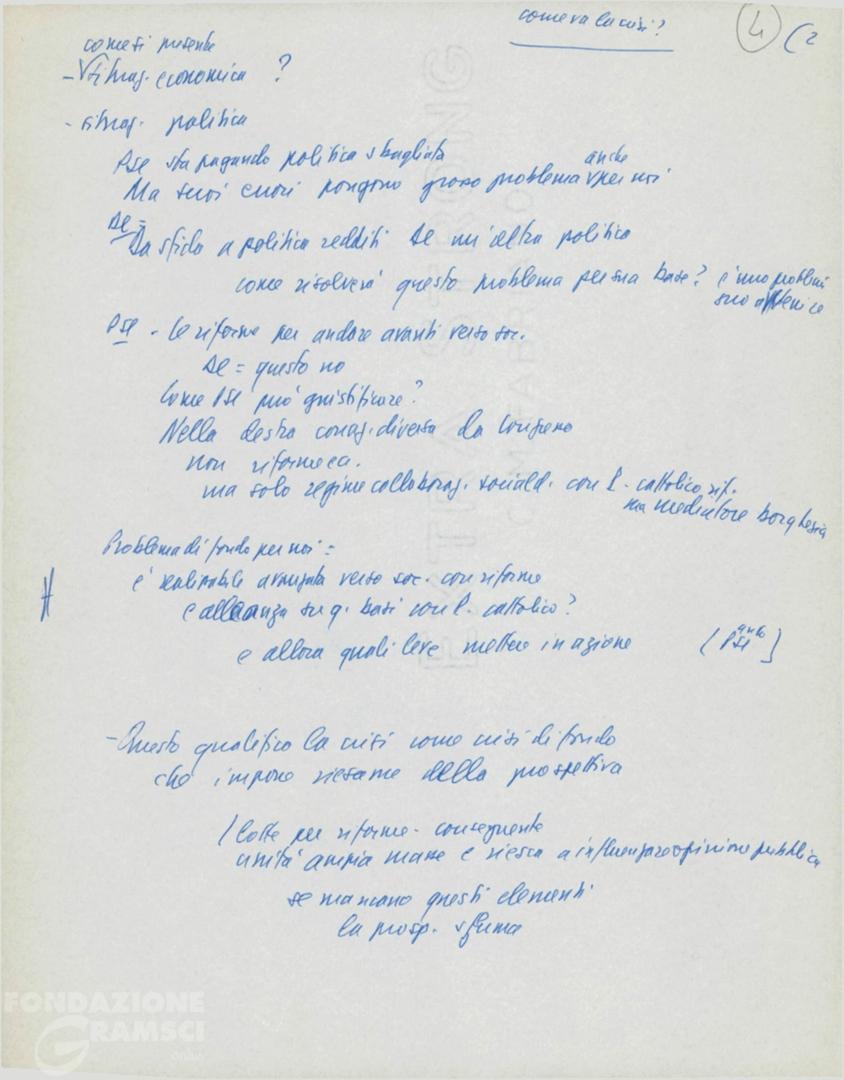 come va la crisi?
4 (2
come si presenta
- situaz. economica ?
- situaz. politica
PSI sta pagando politica sbagliata
anche
Ma suoi errori pongono grosso problema per noi
DC =
Da sfida a politica redditi DC un'altra politica
come risolverà questo problema per sua base? è uno problema
suo
PSI - le riforme per andare avanti verso soc.
DC = questo no
Come PSI può giustificare?
Nella destra conaz. diversa da Congresso
non riforme ec.
ma solo regime collaboraz. sociald. con P. cattolico rif.
ma mediatore borghesia
Problema di fondo per noi =
è realizzabile avanzata verso soc. con riforme
e alleanza su q. basi con P. cattolico?
e allora quali leve mettere in azione (PSI anche)
- Questo qualifica la crisi come crisi di fondo
che impone riesame della prospettiva
/ lotte per riforme - conseguente
unità ampia masse e riesca a influenzare opinione pubblica
se mancano questi elementi
la prosp. sfuma
EXTRA STRONG
FONDAZIONE
GRAMSCI